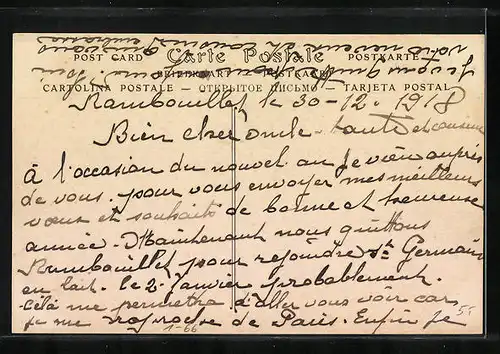 POST CARD Carte Postale POSTKARTE
CARTOLINA POSTALE – ОТКРЫТОЕ ПИСЬМО – TARJETA POSTAL
Rambouillet le 30-12-1918
Bien cher oncle-tante et cousine
à l'occasion du nouvel an je viens auprès
de vous pour vous envoyer mes meilleurs
vœux et souhaits de bonne et heureuse
année. Maintenant nous quittons
Rambouillet pour rejoindre St Germain
en laie. le 2 janvier probablement.
Célà me permettra d'aller vous voir car
je me raproche de Paris. Enfin je
1-66
55
votre neveu et cousin